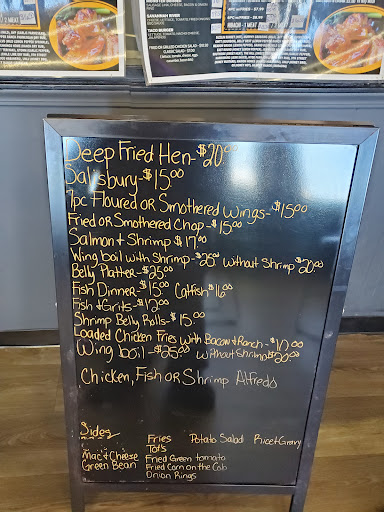 SARAMANAH RIVERS
TACO BURGERS
Deep Fried Hen-$20.00
Salisbury-$15.00
7pc Floured or Smothered Wings-$15.00
Fried or Smothered Chop-$15.00
Salmon & Shrimp $17.00
Wing boil with Shrimp-$25.00 Without Shrimp $20.00
Belly Platter-$25.00
Fish Dinner-$15.00 Catfish $16.00
Fish & Grits-$12.00
Shrimp Belly Rolls-$15.00
Loaded Chicken Fries with Bacon & Ranch-$10.00
Wing boil-$25.00 Without Shrimp $20.00
Chicken, Fish or Shrimp Alfredo
Sides
Fries Potato Salad Rice & Gravy
Tots
Mac & Cheese Fried Green tomato
Green Bean Fried Corn on the Cob
Onion Rings